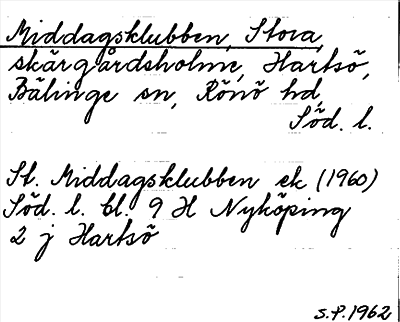 Middagsklubben, Stora,
skärgårdsholme, Hartsö,
Bälinge sn, Rönö hd,
Söd. l.
St. Middagsklubben ek (1960)
Söd. l. bl. 9 H Nyköping
2 j Hartsö
S.P. 1962